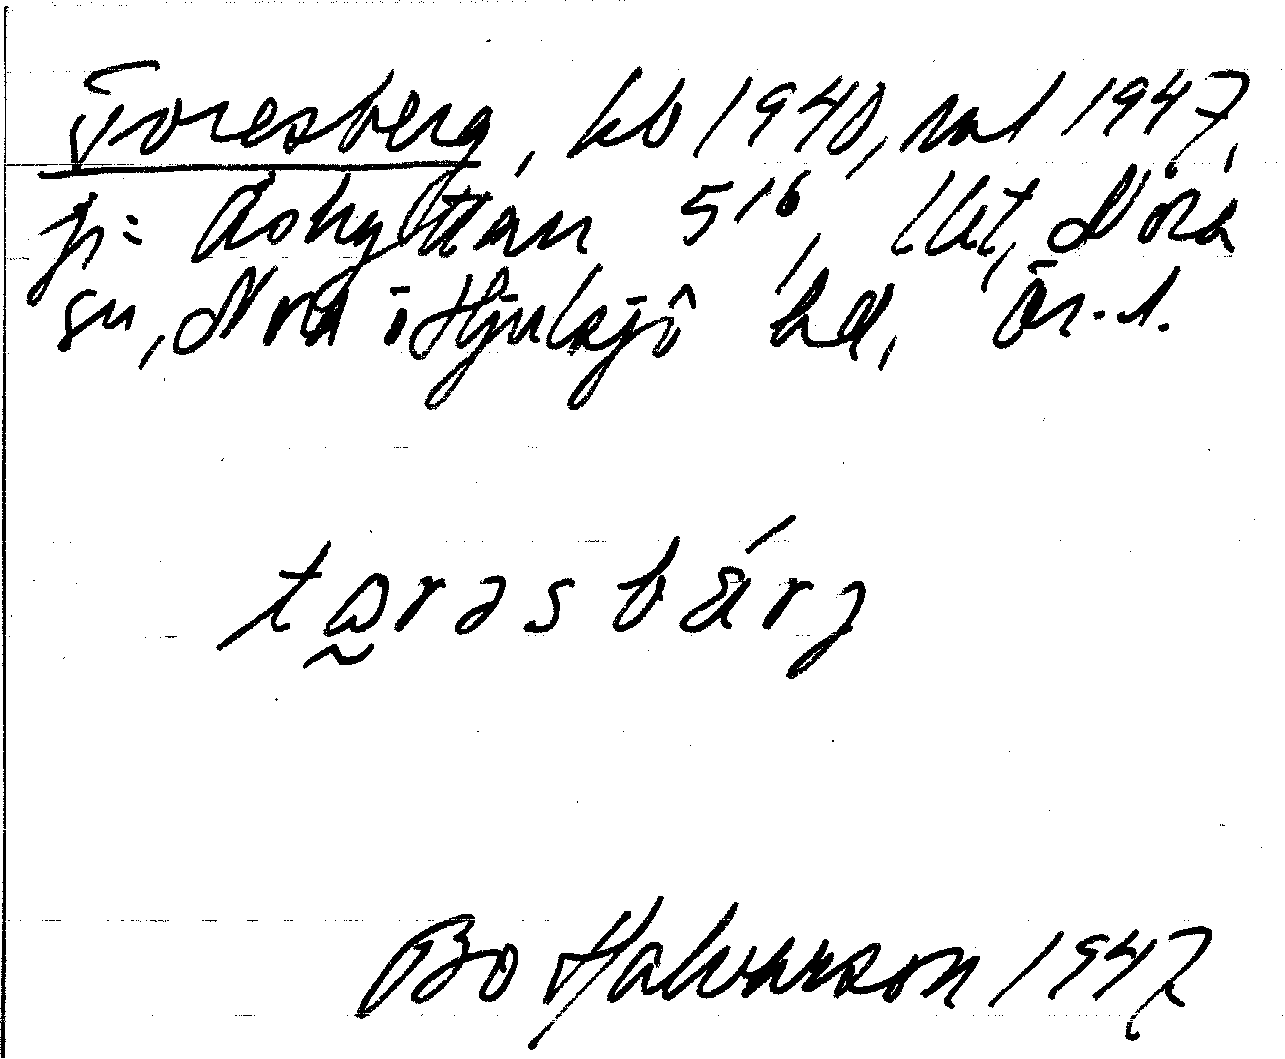 Toresberg, kb 1940, mt 1947,
p: Åshyttan 5¹⁶, lht, Nora
sn, Nora o Hjulsjö hd, Ör. l.
tɷrəsbärj
Bo Halvarson 1947